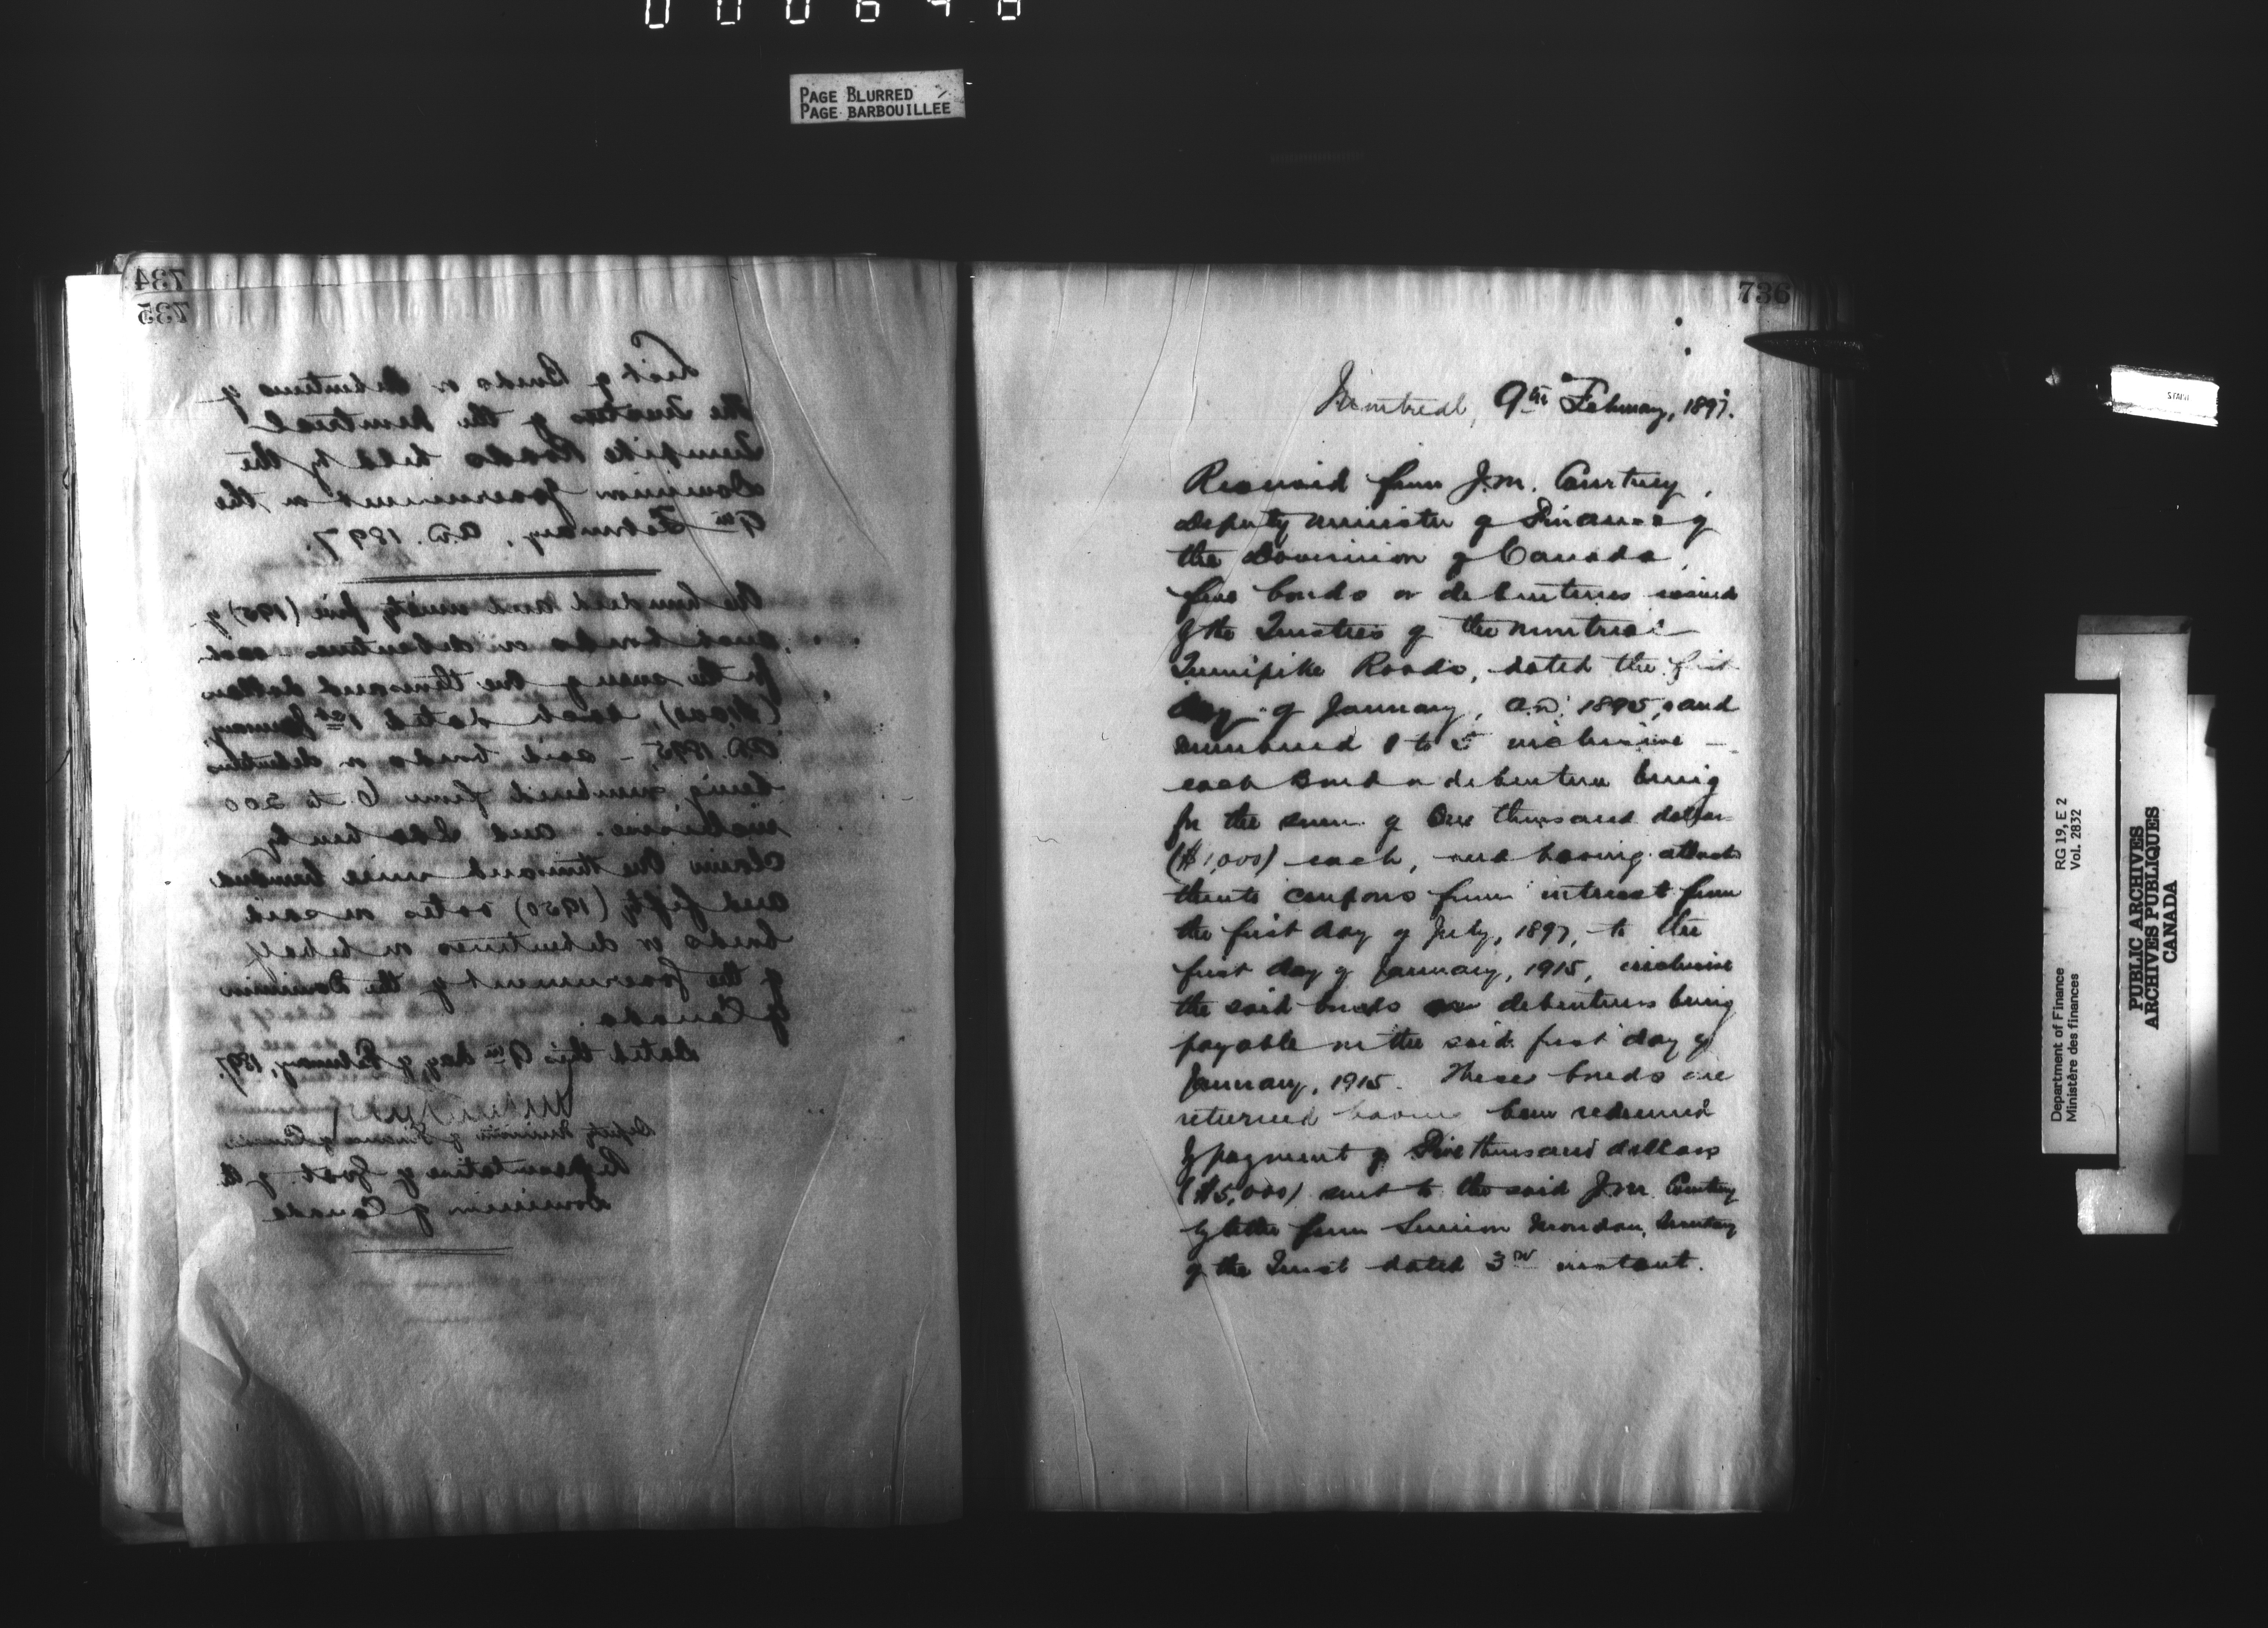 000648
PAGE BLURRED
PAGE BARBOUILLEE
734
735
List of Bonds or debentures of
the Trustees of the Montreal
Turnpike Roads held by the
Dominion Government on the
9th February, A.D. 1897.
One hundred and ninety five (195) of
such bonds or debentures each
for the sum of One thousand dollars
($1,000), each dated 1st January,
A.D. 1895, - said bonds or debentures
being numbered from 6 to 200
inclusive. and I do hereby
claim One thousand nine hundred
and fifty (1950) votes on said
bonds or debentures on behalf
of the Government of the Dominion
of Canada.
Dated this 9th day of February, 1897.
Deputy Minister of Finance of Canada
Representative of Govt. of the
Dominion of Canada
736
Montreal, 9th February, 1897.
Received from J.M. Courtney,
Deputy Minister of Finance of
the Dominion of Canada,
five bonds or debentures issued
by the Trustees of the Montreal
Turnpike Roads, dated the first
day of January, A.D. 1895, and
numbered 1 to 5 inclusive -
each Bond or debenture being
for the sum of One thousand dollars
($1,000) each, and having attached
thereto coupons from interest from
the first day of July, 1897, to the
first day of January, 1915, inclusive
the said bonds or debentures being
payable on the said first day of
January, 1915. These bonds are
returned having been redeemed
by payment of Five thousand dollars
($5,000) sent to the said J.M. Courtney
by letter from Simeon Mondou, Secretary
of the Trust dated 3rd instant.
Department of Finance
Ministère des finances
RG 19, E 2
Vol. 2832
PUBLIC ARCHIVES
ARCHIVES PUBLIQUES
CANADA